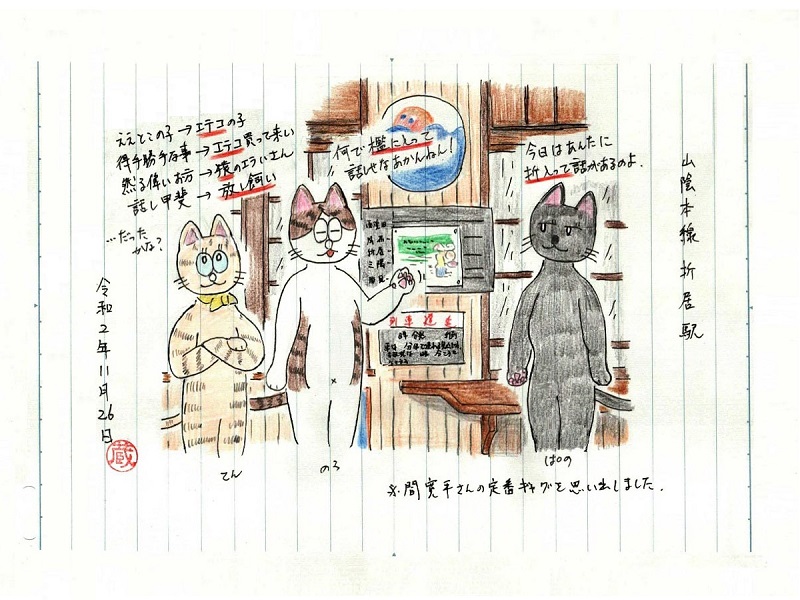 山陰本線 折居駅
今日はあんたに
折入って話があるのよ.
何で檻に入って
話しせなあかんねん!
ええとこの子→エテコの子
得手勝手な事→エテコ買って来い
然る偉いお方→猿のエライさん
話し甲斐→放し飼い
…だった
かな?
令和2年11月26日
蔵
てん
のろ
ぱの
※間寛平さんの定番ギャグを思い出しました.